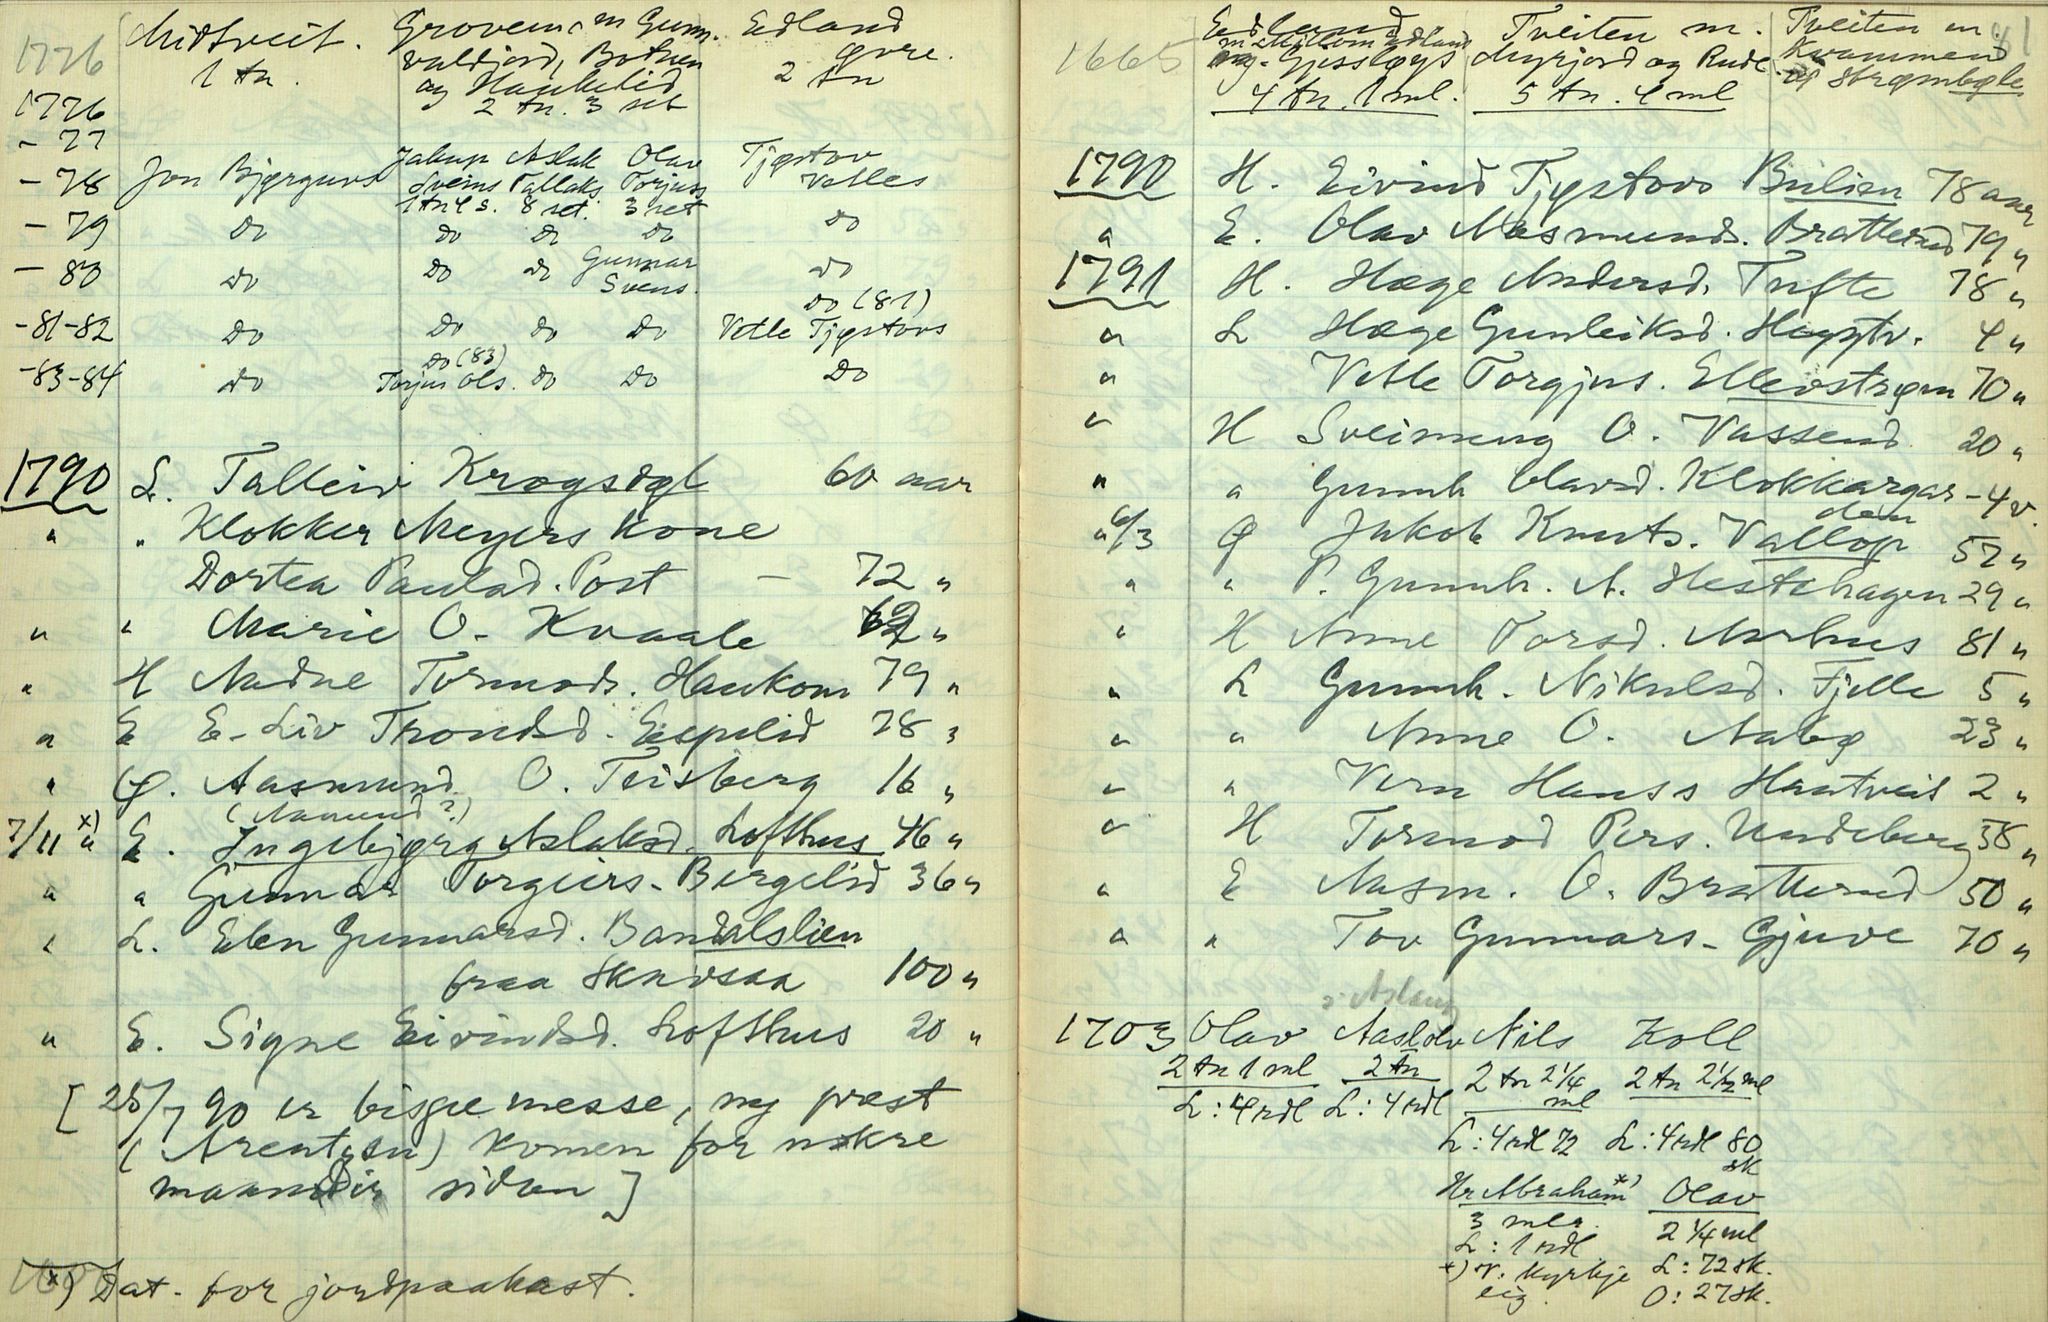 1776
Midtveit.
1 tn.
Groven m Gunn.
valdjord, Botnen
og Haukelid
2 tn. 3 set
Edland
øvre.
2 tn
1776
- 77
- 78 Jon Bjørguvs Jakup Sveins 1 tn 4 s. Aslak Tallaks 8 set. Olav Torjus 3 set Tjøstov Vetles
- 79 Do Do Do Do Do
- 80 Do Do Do Gunnar Svens. Do
Do (81)
-81-82 Do Do Do Do Vetle Tjøstovs
Do (83)
-83-84 Do Torjus Ols. Do Do Do
1790 L. Talleiv Krogsdøl 60 aar
" " Klokker Meyers kone
Dortea Paulsd. Post - 72 "
" " Marie O. Kvaale 62 "
" H Aadne Tormods. Haukom 79 "
" E E. Liv Trondsd. Espelid 78 "
" Ø. Aasmund O. Teisberg 16 "
(Aamund?)
7/11 x) " E. Ingebjørg Aslaksd. Lofthus 46 "
" " Gunnar Torgeirs. Bergelid 36 "
" L. Eben Gunnarsd. Bandalslien
fraa Skavsaa 100 "
" E. Signe Eivindsd. Lofthus 20 "
[ 25/7 90 er bispemesse, ny prest
(Arentzen) komen for nokre
maanadir sidan ]
x) Dat. for jordpaakast.
1665
Edland
m Millom Edland
og Gjessløys
4 tn. 1 ml.
Tveiten m.
Myrjord og Rudl.
5 tn. 4 ml
Tveiten m.
Kvammen
og Strømbøle
81
1790 H. Eivind Tjøstovs Bulien 78 aar
" E. Olav Aasmunds. Bratterud 79 "
1791 H. Hæge Andersd. Tufte 78 "
" L Hæge Gunleiksd. Høgstv. 4 "
" Vetle Torgjus. Ellevstrøm 70 "
" H Sveinung O. Vassend 20 "
" " Gunnh Olavsd. Klokkargar- 4 v.
den
" 6/3 Ø Jakob Knuts. Vallop 52 "
" " P. Gunnh. A. Hestehagen 29 "
" H Anne Torsd. Aarhus 81 "
" L Gunnh. Nikulsd. Fjelle 5 "
" " Anne O. Aabø 23 "
" " Vern Hanss Hautveit 2 "
" H Tormod Pers. Undeberg 38 "
" E Aasm. O. Bratterud 50 "
" " Tov Gunnars. Gjuve 70 "
o: Aslaug
1703 Olav Aaslov Nils Koll
2 tn 1 ml 2 tn 2 tn 2 1/4 ml 2 tn 2 1/2 ml
L: 4 rdl L: 4 rdl
L: 4 rdl 72 L: 4 rdl 80
sk
Hr Abraham x) Olav
3 mlr. 2 1/4 ml
L: 1 rdl L: 72 sk.
x) V. kyrkje O: 27 sk.
eig.